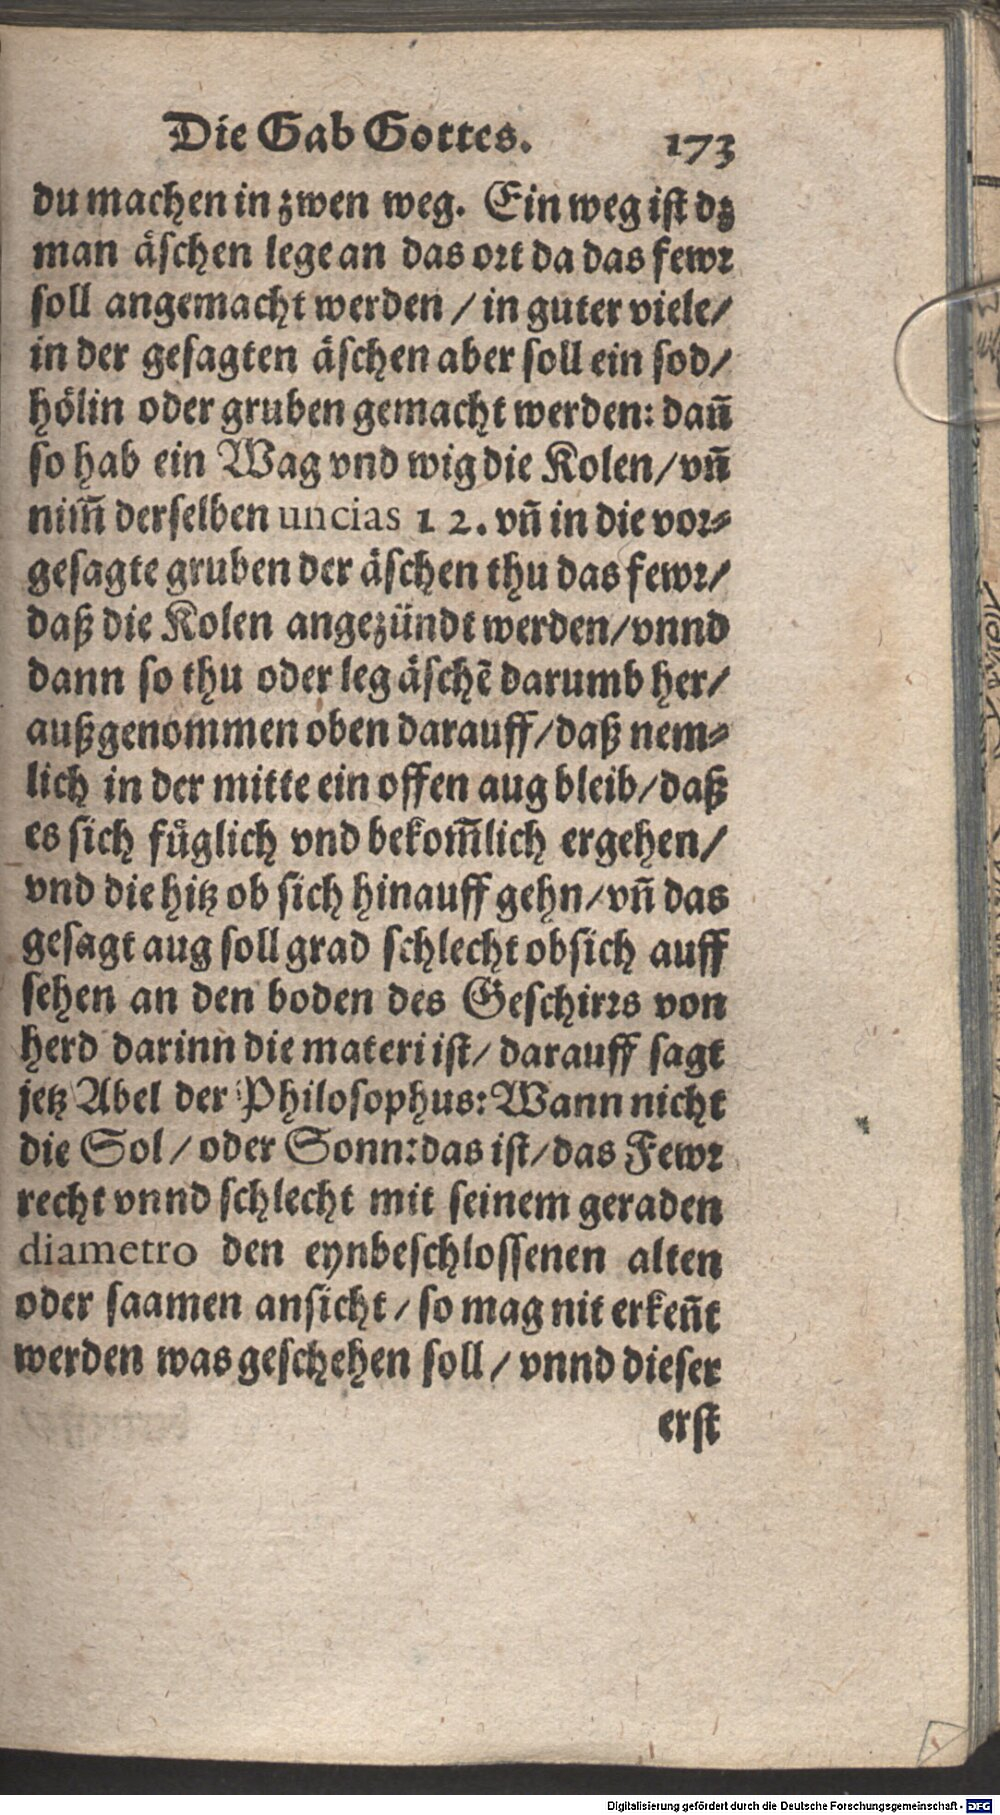 Die Gab Gottes. 173
du machen in zwen weg. Ein weg ist dz
man äschen lege an das ort da das fewr
soll angemacht werden / in guter viele/
in der gesagten äschen aber soll ein sod/
hölin oder gruben gemacht werden: dañ
so hab ein Wag vnd wig die Kolen/vñ
nim̃ derselben uncias 12. vñ in die vor⸗
gesagte gruben der äschen thu das fewr/
daß die Kolen angezündt werden/vnnd
dann so thu oder leg äschẽ darumb her/
außgenommen oben darauff/daß nem⸗
lich in der mitte ein offen aug bleib/daß
es sich füglich vnd bekom̃lich ergehen/
vnd die hitz ob sich hinauff gehn/vñ das
gesagt aug soll grad schlecht obsich auff
sehen an den boden des Geschirrs von
herd darinn die materi ist/ darauff sagt
jetz Abel der Philosophus: Wann nicht
die Sol / oder Sonn: das ist/das Fewr
recht vnnd schlecht mit seinem geraden
diametro den eynbeschlossenen alten
oder saamen ansicht / so mag nit erkeñt
werden was geschehen soll / vnnd dieser
erst
Digitalisierung gefördert durch die Deutsche Forschungsgemeinschaft - DFG